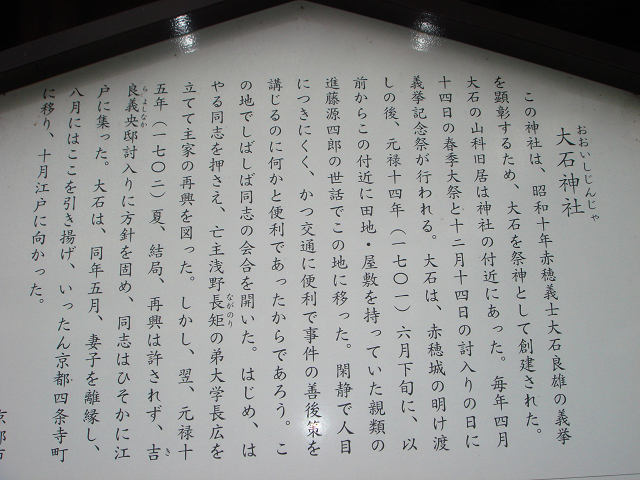 おおいしじんじゃ
大石神社
この神社は、昭和十年赤穂義士大石良雄の義挙
を顕彰するため、大石を祭神として創建された。
大石の山科旧居は神社の付近にあった。毎年四月
十四日の春季大祭と十二月十四日の討入りの日に
義挙記念祭が行われる。大石は、赤穂城の明け渡
しの後、元禄十四年（一七〇一）六月下旬に、以
前からこの付近に田地・屋敷を持っていた親類の
進藤源四郎の世話でこの地に移った。閑静で人目
につきにくく、かつ交通に便利で事件の善後策を
講じるのに何かと便利であったからであろう。こ
の地でしばしば同志の会合を開いた。はじめ、は
やる同志を押さえ、亡主浅野長矩の弟大学長広を
ながのり
立てて主家の再興を図った。しかし、翌、元禄十
五年（一七〇二）夏、結局、再興は許されず、吉
き
良義央邸討入りに方針を固め、同志はひそかに江
らよしなか
戸に集った。大石は、同年五月、妻子を離縁し、
八月にはここを引き揚げ、いったん京都四条寺町
に移り、十月江戸に向かった。
京都市